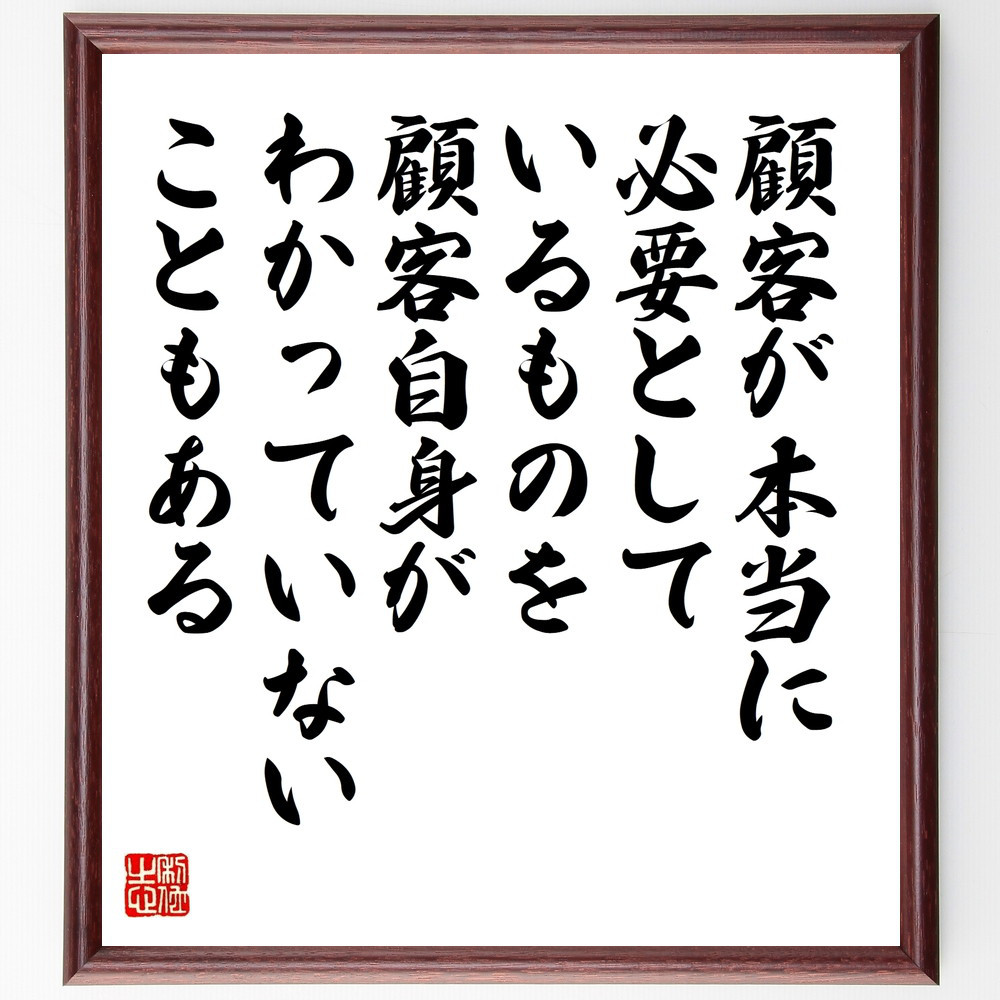 顧客が本当に
必要として
いるものを
顧客自身が
わかっていない
こともある